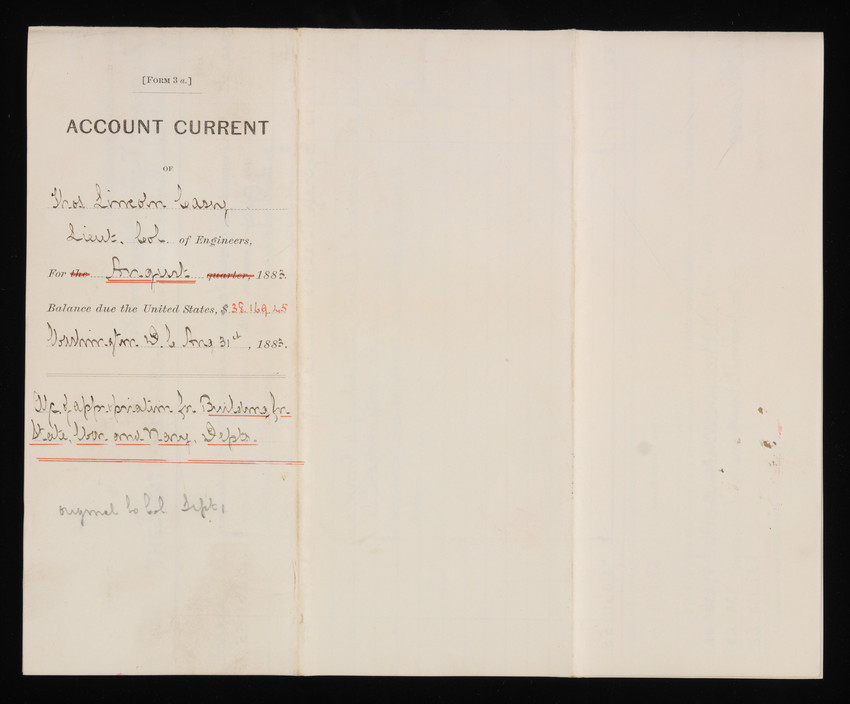 [FORM 3 a.]
ACCOUNT CURRENT
OF
Thos Lincoln Casey
Lieut. Col. of Engineers,
For the August quarter, 1883.
Balance due the United States, $ 38.169.45
Washington D.C. Aug 31st, 1883.
a/c of appropriation for Building for
State, War and Navy. Depts.
original to Col Sept 1